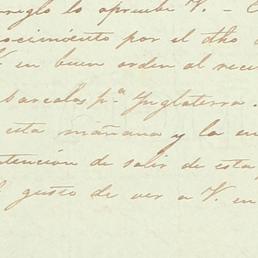 reglo lo apruebe V. - C
nocimiento por el dho
V en buen orden al reci
barcalos pª Ynglaterra.
esta mañana y la en
ntencion de salir de esta
l gusto de ver a V. en